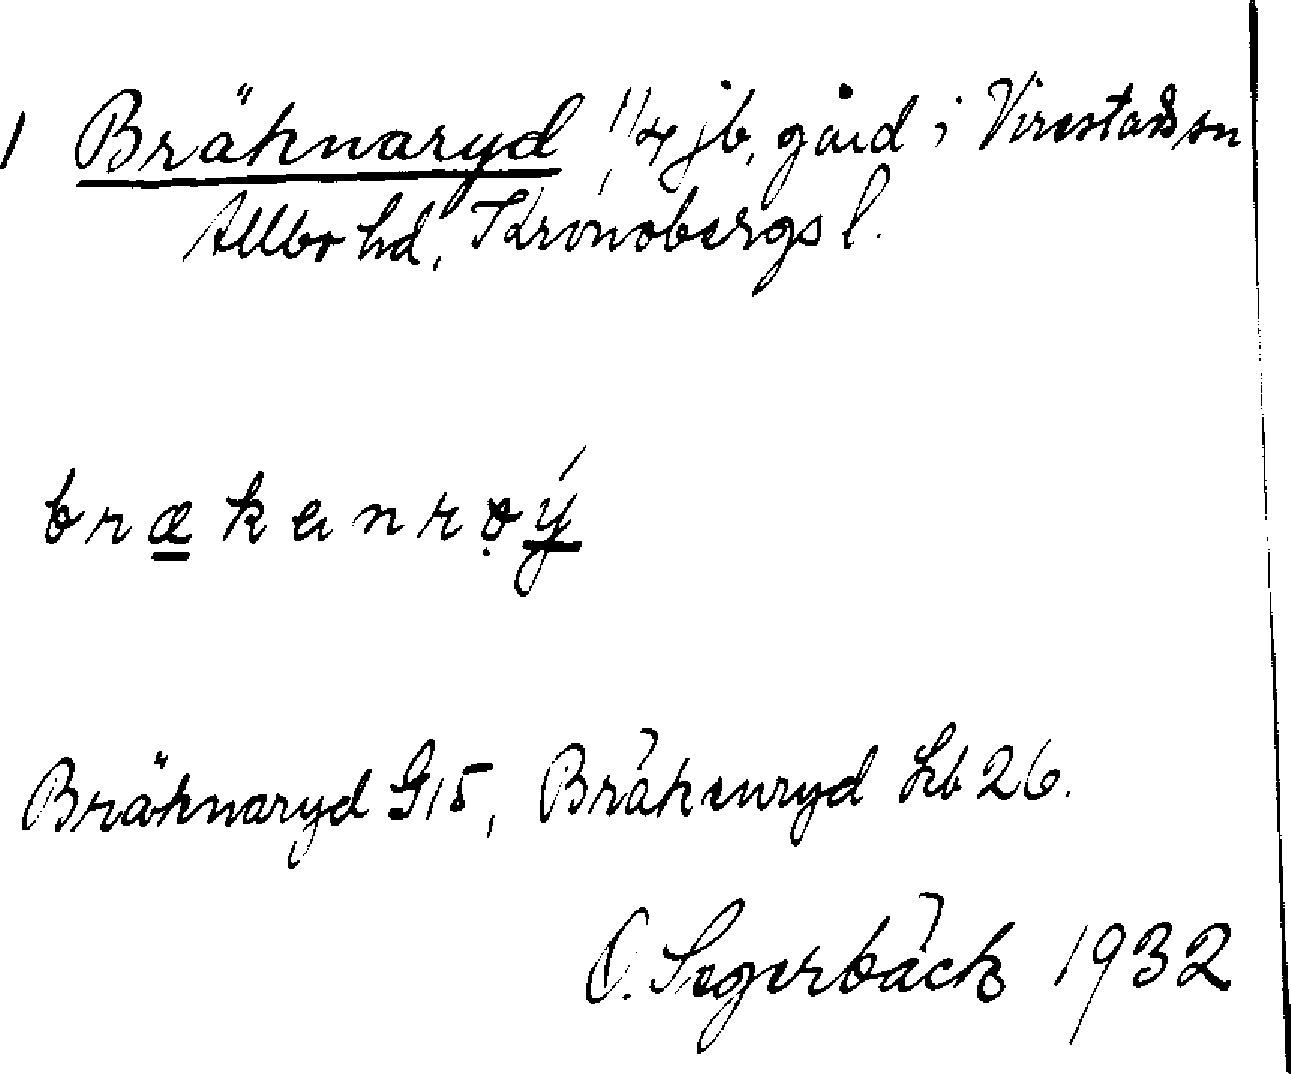 1 Bräknaryd, 1/4 jb, gård i Virestads sn
Allbo hd, Kronobergs l.
brækenrøý
Bräknaryd G15, Bräkenryd Lb 26.
O. Segerbäck 1932